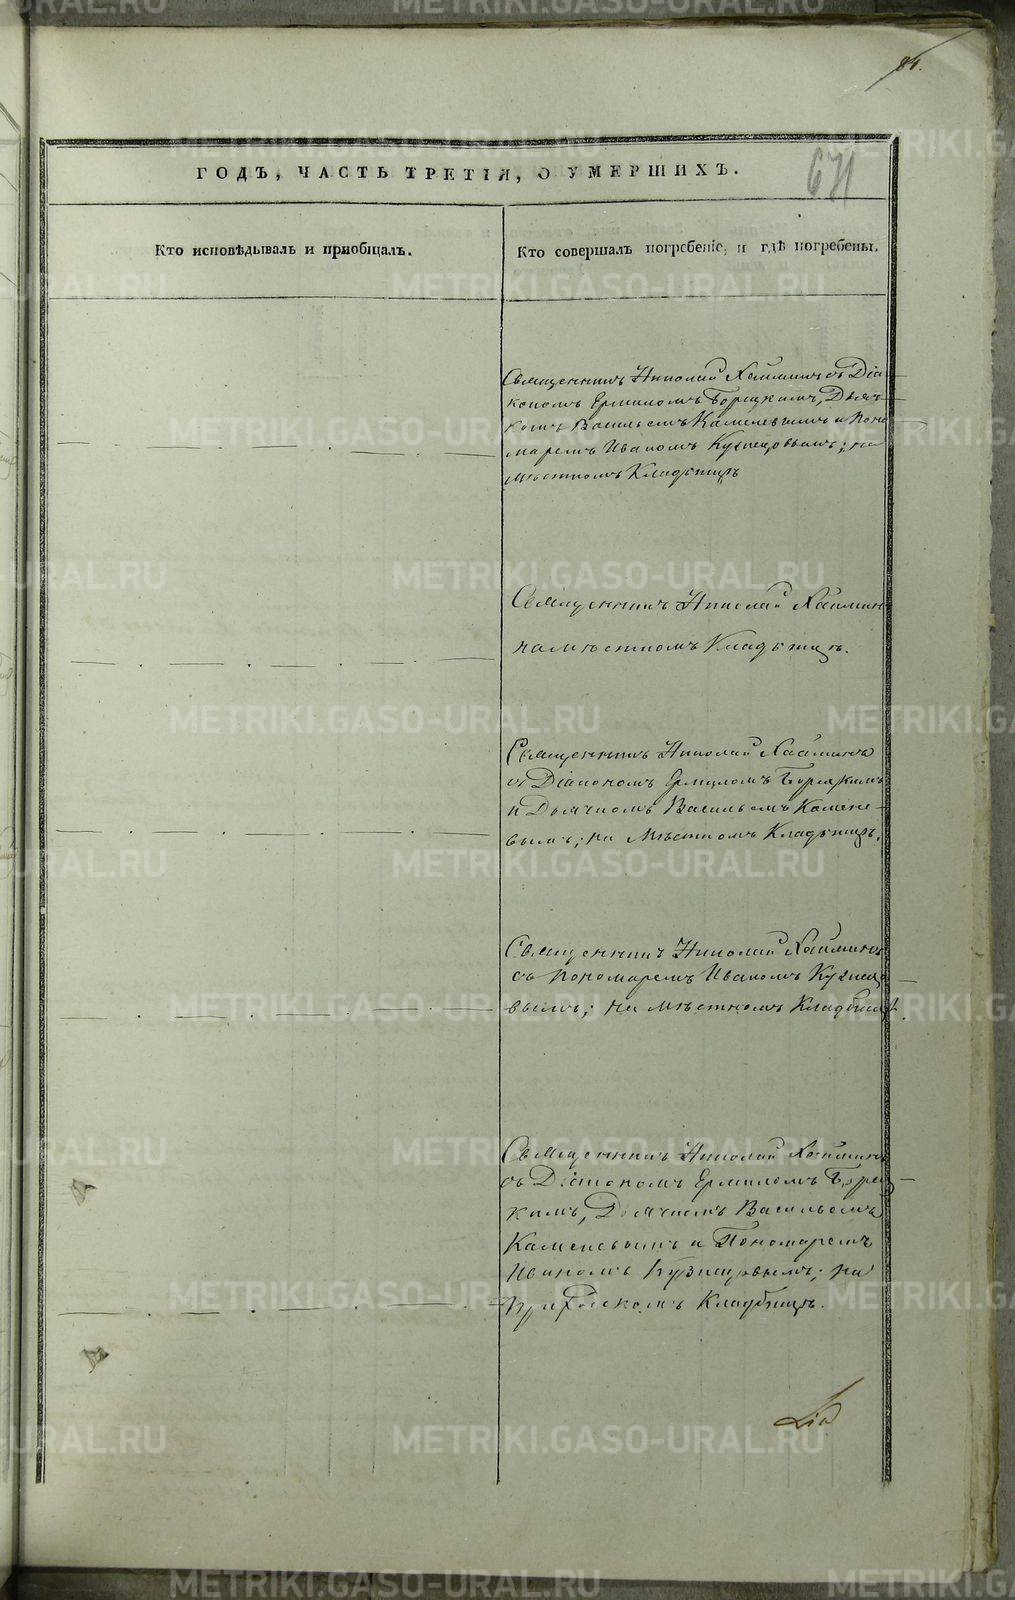 84.
671
ГОДЪ, ЧАСТЬ ТРЕТІЯ, О УМЕРШИХЪ.
Кто исповѣдывалъ и пріобщалъ.
Кто совершалъ погребеніе, и гдѣ погребены.
Священникъ Николай Хайминъ съ Діа-
кономъ Ермиломъ Борецкимъ, Дьяч-
комъ Васильемъ Каменевымъ и Поно
маремъ Иваномъ Кузнецовымъ; на
мѣстномъ Кладбищѣ
Священникъ Николай Хайминъ
на мѣстномъ Кладбищѣ.
Священникъ Николай Хайминъ
съ Діакономъ Ермиломъ Борецкимъ
и Дьячкомъ Васильемъ Камене-
вымъ; на Мѣстномъ Кладбищѣ.
Священникъ Николай Хайминъ
съ Пономаремъ Иваномъ Кузнецо-
вымъ; на мѣстномъ Кладбищѣ.
Священникъ Николай Хайминъ
съ Діакономъ Ермиломъ Борец-
кимъ, Дьячкомъ Васильемъ
Каменевымъ и Пономаремъ
Иваномъ Кузнецовымъ; на
приходскомъ Кладбищѣ.
METRIKI.GASO-URAL.RU